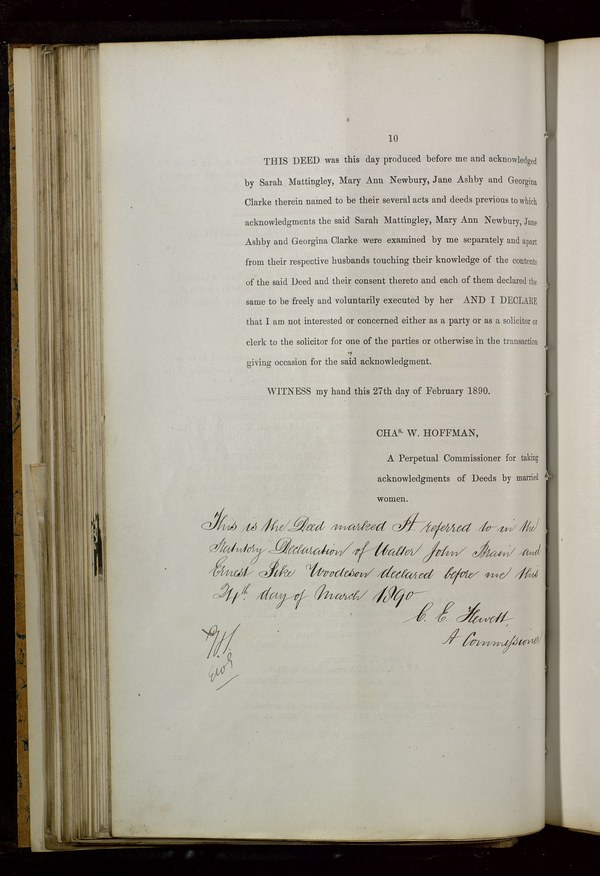 10
THIS DEED was this day produced before me and acknowledged
by Sarah Mattingley, Mary Ann Newbury, Jane Ashby and Georgina
Clarke therein named to be their several acts and deeds previous to which
acknowledgments the said Sarah Mattingley, Mary Ann Newbury, Jane
Ashby and Georgina Clarke were examined by me separately and apart
from their respective husbands touching their knowledge of the contents
of the said Deed and their consent thereto and each of them declared the
same to be freely and voluntarily executed by her AND I DECLARE
that I am not interested or concerned either as a party or as a solicitor or
clerk to the solicitor for one of the parties or otherwise in the transaction
giving occasion for the said acknowledgment.
WITNESS my hand this 27th day of February 1890.
CHAS. W. HOFFMAN,
A Perpetual Commissioner for taking
acknowledgments of Deeds by married
women.
This is the Deed marked A referred to in the
Statutory Declaration of Walter John Strain and
Ernest Pike Woodeson declared before me this
24th day of March 1890
C. E. Hewett.
A Commissioner